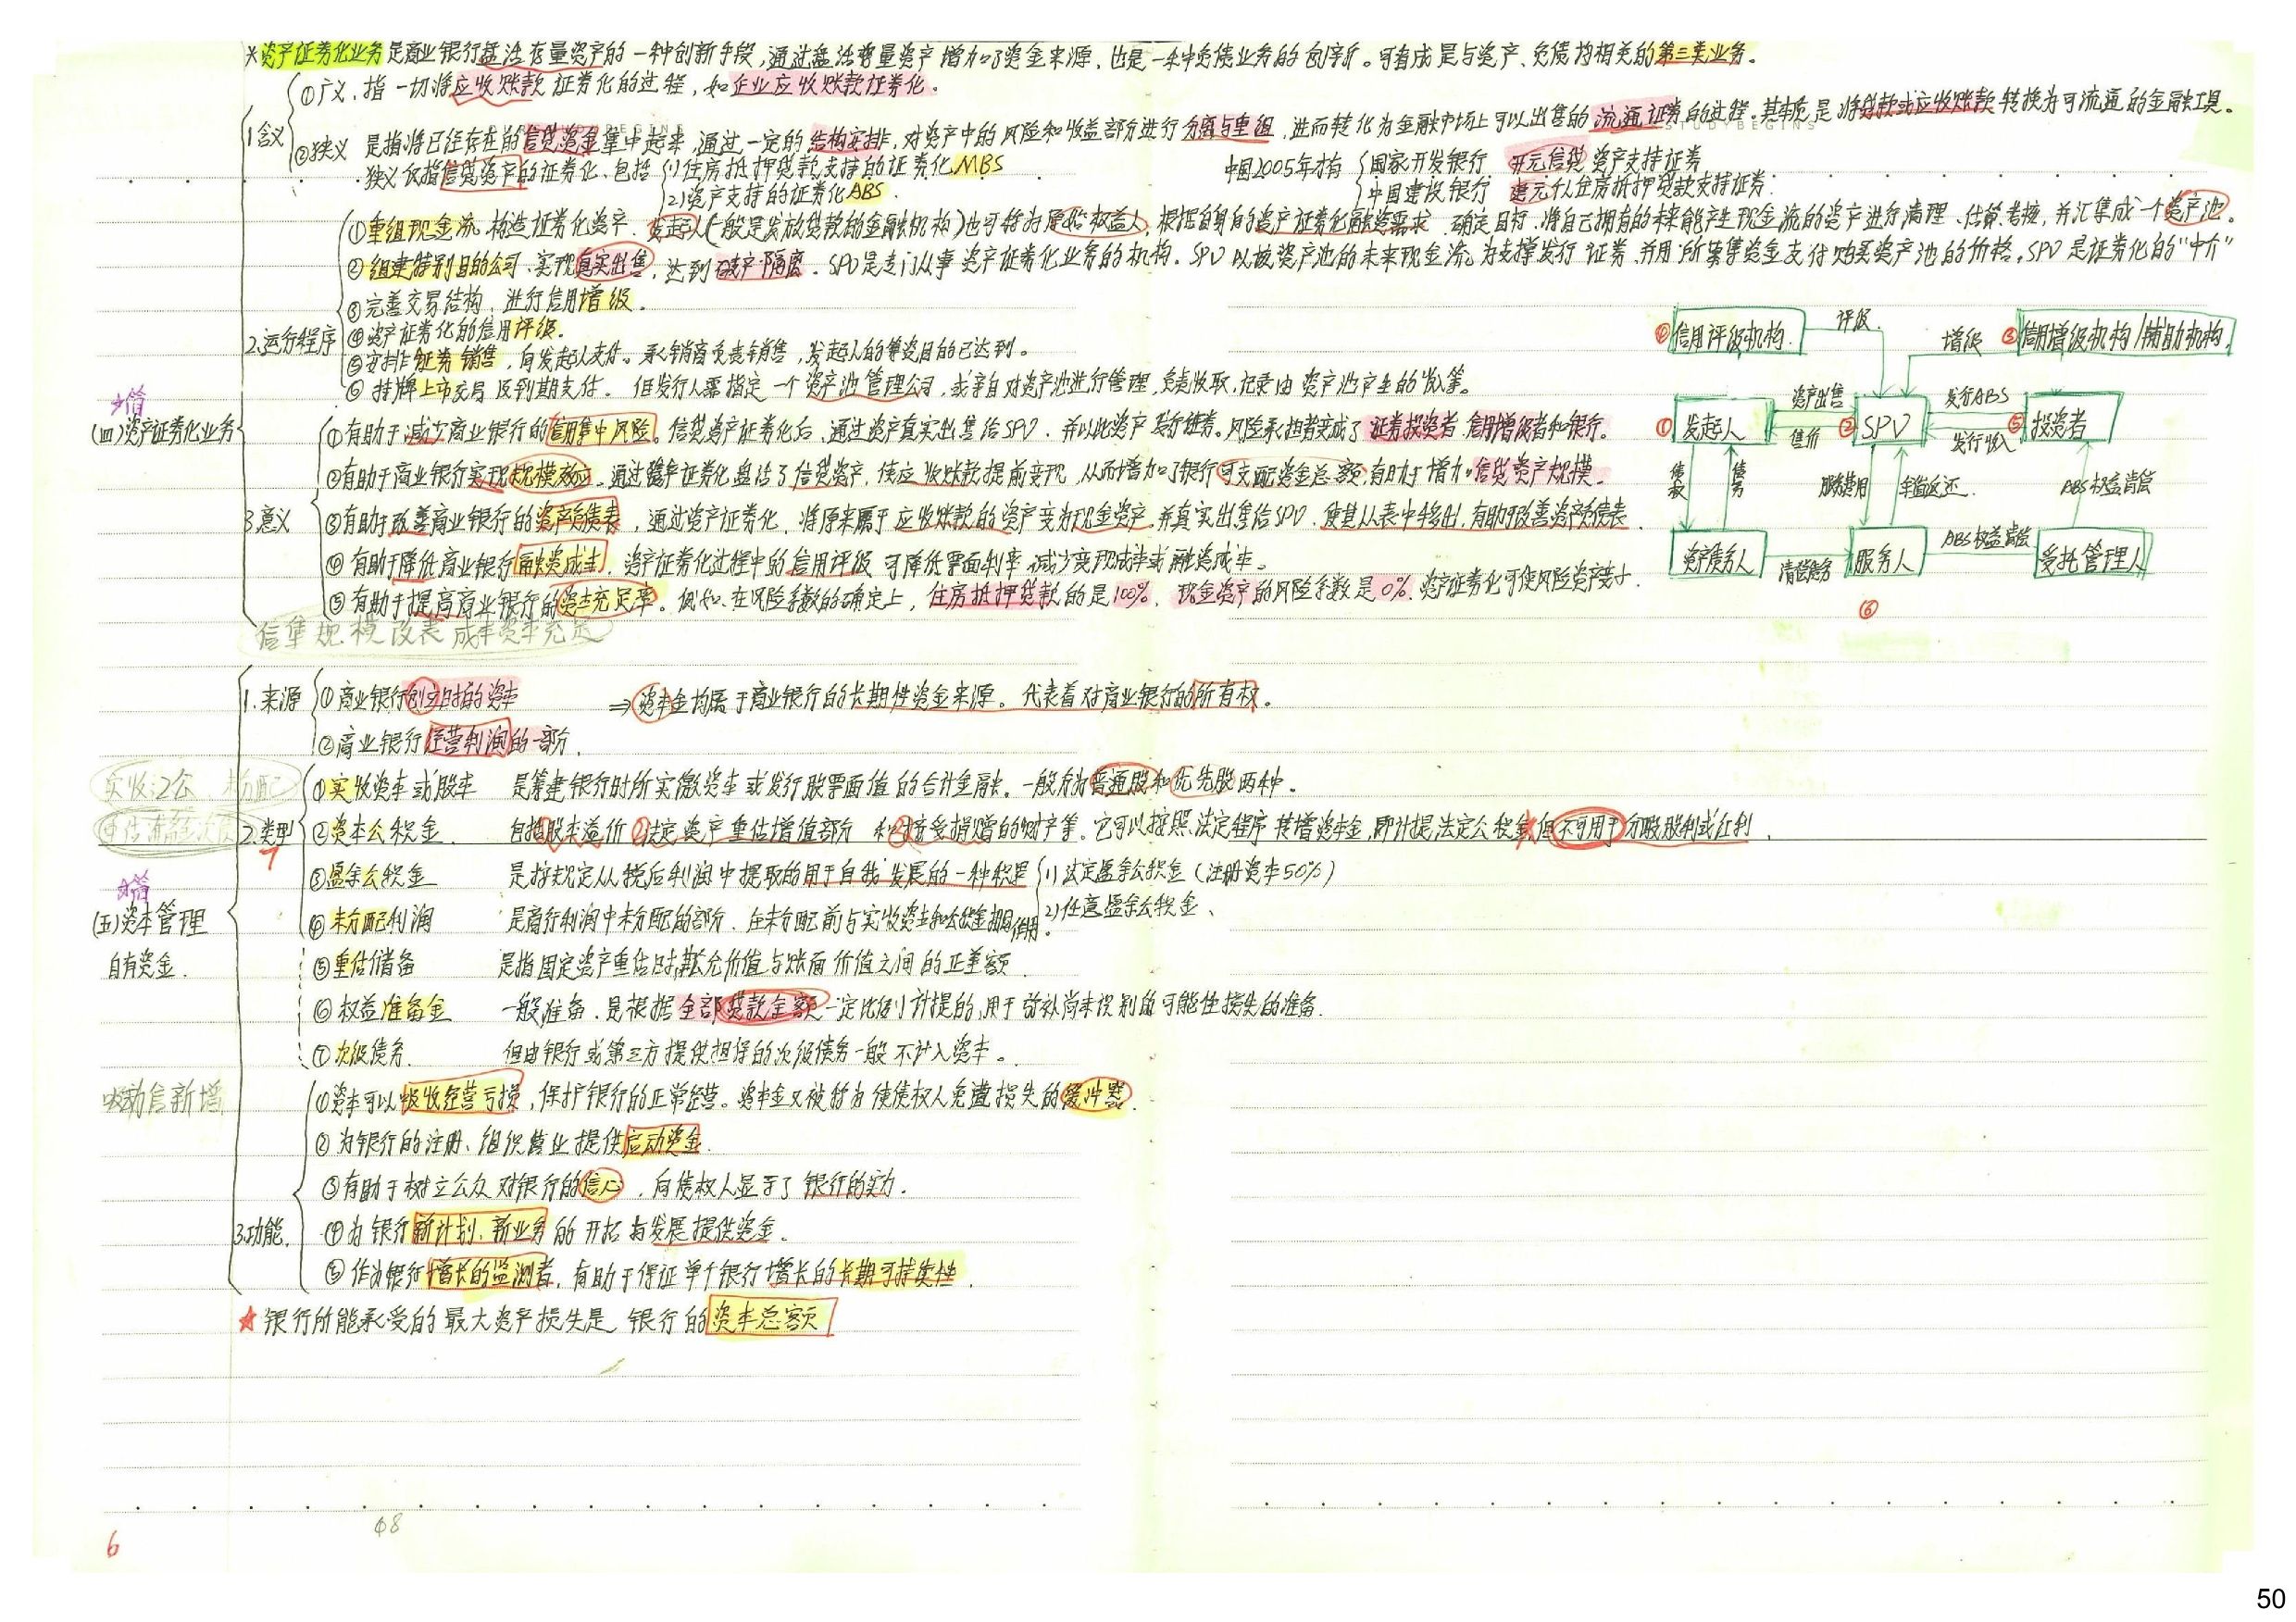 *资产证券化业务是商业银行盘活存量资产的一种创新手段,通过盘活存量资产增加了资金来源、也是一种负债业务的创新。可看成是与资产、负债均相关的第三类业务。
1.含义
①广义、指一切将应收账款证券化的过程,如企业应收账款证券化。
②狭义 是指将已经存在的信贷资金集中起来,通过一定的结构安排,对资产中的风险和收益部分进行分离与重组,进而转化为金融市场上可以出售的流通证券的过程。其本质是将贷款或应收账款转换为可流通的金融工具。
STUDYBEGINS
狭义仅指信贷资产的证券化、包括 (1)住房抵押贷款支持的证券化MBS
(2)资产支持的证券化ABS.
中国2005年才有 国家开发银行 开元信贷资产支持证券
中国建设银行 建元个人住房抵押贷款支持证券.
☆简
(四)资产证券化业务
2.运行程序
①重组现金流、构造证券化资产. 发起人(一般是发放贷款的金融机构)也可称为原始权益人,根据自身的资产证券化融资需求、确定目标,将自己拥有的未来能产生现金流的资产进行清理、估算、考核,并汇集成一个资产池。
②组建特别目的公司、实现真实出售,达到破产隔离. SPV是专门从事资产证券化业务的机构. SPV以该资产池的未来现金流为支撑发行证券,并用所募集资金支付购买资产池的价格。SPV是证券化的"中介"
③完善交易结构,进行信用增级。
④资产证券化的信用评级。
⑤安排证券销售,向发起人支付。承销商负责销售,发起人的筹资目的已达到。
⑥挂牌上市交易及到期支付. 但发行人需指定一个资产池管理公司,或亲自对资产池进行管理,负责收取、记录由资产池产生的收入等。
④信用评级机构. 评级.
增级 ③信用增级机构/辅助机构.
①发起人 资产出售 售价 ②SPV 发行ABS 发行收入 ⑤投资者
债权 债务 服务费用 余额返还. ABS权益偿管
资产债务人 清偿债务 服务人 ABS权益偿管 受托管理人
⑥
3.意义
①有助于减少商业银行的信用集中风险。信贷资产证券化后、通过资产真实出售给SPV、并以此资产发行证券。风险承担者变成了证券投资者、信用增级者和银行。
②有助于商业银行实现规模效应. 通过资产证券化盘活了信贷资产,使应收账款提前变现,从而增加了银行可支配资金总额,有助于增加信贷资产规模。
③有助于改善商业银行的资产负债表,通过资产证券化,将原来属于应收账款的资产变为现金资产,并真实出售给SPV、使其从表中移出,有助于改善资产负债表.
④有助于降低商业银行融资成本. 资产证券化过程中的信用评级可降低票面利率、减少变现成本或融资成本。
⑤有助于提高商业银行的资本充足率。例如、在风险系数的确定上,住房抵押贷款的是100%、现金资产的风险系数是0%、资产证券化可使风险资产变小.
信集规模改表成本资本充足
☆简
(五)资本管理
自有资金.
1.来源
①商业银行创立时的资本 ⇒资本金均属于商业银行的长期性资金来源。代表着对商业银行的所有权。
②商业银行经营利润的一部分.
实收:2公 未分配
重估准备金次债
2.类型
7
①实收资本或股本 是筹建银行时所实缴资本或发行股票面值的合计金额。一般分为普通股和优先股两种。
②资本公积金. 包括①股本溢价②法定资产重估增值部分和③接受捐赠的财产等。它可以按照法定程序转增资本金,即计提法定公积金,但不可用于分配股利或红利.
③盈余公积金 是按规定从税后利润中提取的用于自我发展的一种积累 (1)法定盈余公积金(注册资本50%)
(2)任意盈余公积金、
④未分配利润 是商行利润中未分配的部分. 在未分配前与实收资本和公积金相同作用。
⑤重估储备 是指固定资产重估时,其公允价值与账面价值之间的正差额.
⑥权益准备金 一般准备、是根据全部贷款金额一定比例计提的,用于弥补尚未识别的可能性损失的准备.
⑦次级债务. 但由银行或第三方提供担保的次级债务一般不计入资本。
吸动信新增
3.功能.
①资本可以吸收经营亏损,保护银行的正常经营。资本金又被称为使债权人免遭损失的缓冲器.
②为银行的注册、组织营业提供启动资金.
③有助于树立公众对银行的信心,向债权人显示了银行的实力.
④为银行新计划、新业务的开拓与发展提供资金。
⑤作为银行增长的监测者,有助于保证单个银行增长的长期可持续性.
★银行所能承受的最大资产损失是银行的资本总额
6
68
50